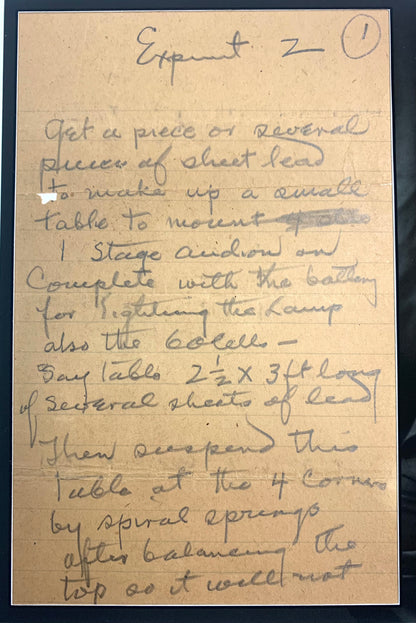 Expmnt 2 1
Get a piece or several
pieces of sheet lead
to make up a small
table to mount
1 Stage audion on
Complete with the battery
for Lighting the Lamp
also the 60 Cells —
Say Table 2 1/2 X 3 ft long
of several sheets of lead
Then suspend this
Table at the 4 Corners
by spiral springs
after balancing the
top so it will not